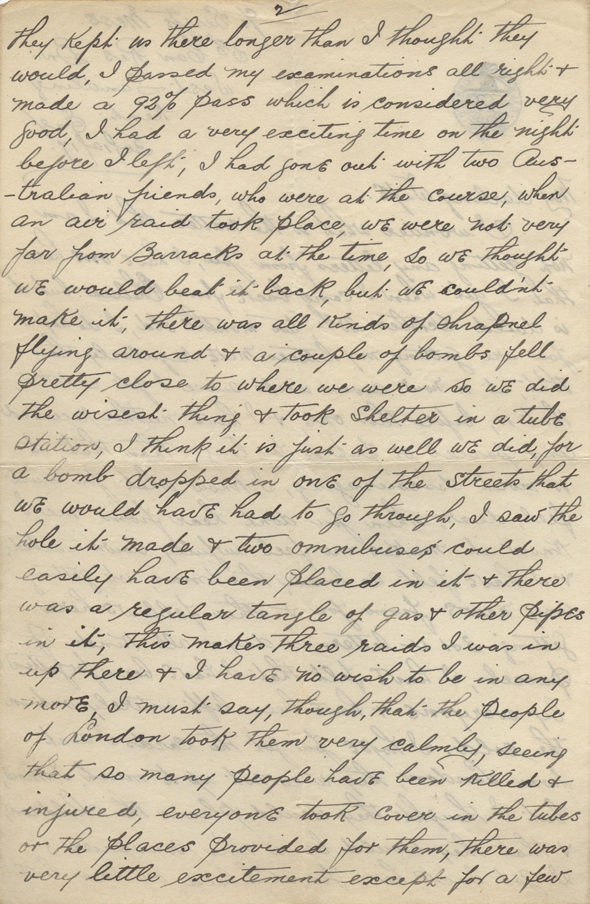 2
they kept us there longer than I thought they
would, I passed my examinations all right &
made a 92% pass which is considered very
good, I had a very exciting time on the night
before I left, I had gone out with two Aus-
-tralian friends, who were at the course, when
an air raid took place, we were not very
far from Barracks at the time, so we thought
we would beat it back, but we couldn't
make it, there was all kinds of shrapnel
flying around & a couple of bombs fell
pretty close to where we were so we did
the wisest thing & took shelter in a tube
station, I think it is just as well we did, for
a bomb dropped in one of the streets that
we would have had to go through, I saw the
hole it made & two omnibuses could
easily have been placed in it & there
was a regular tangle of gas & other pipes
in it, this makes three raids I was in
up there & I have no wish to be in any
more, I must say, though, that the people
of London took them very calmly, seeing
that so many people have been killed &
injured, everyone took cover in the tubes
or the places provided for them, there was
very little excitement except for a few